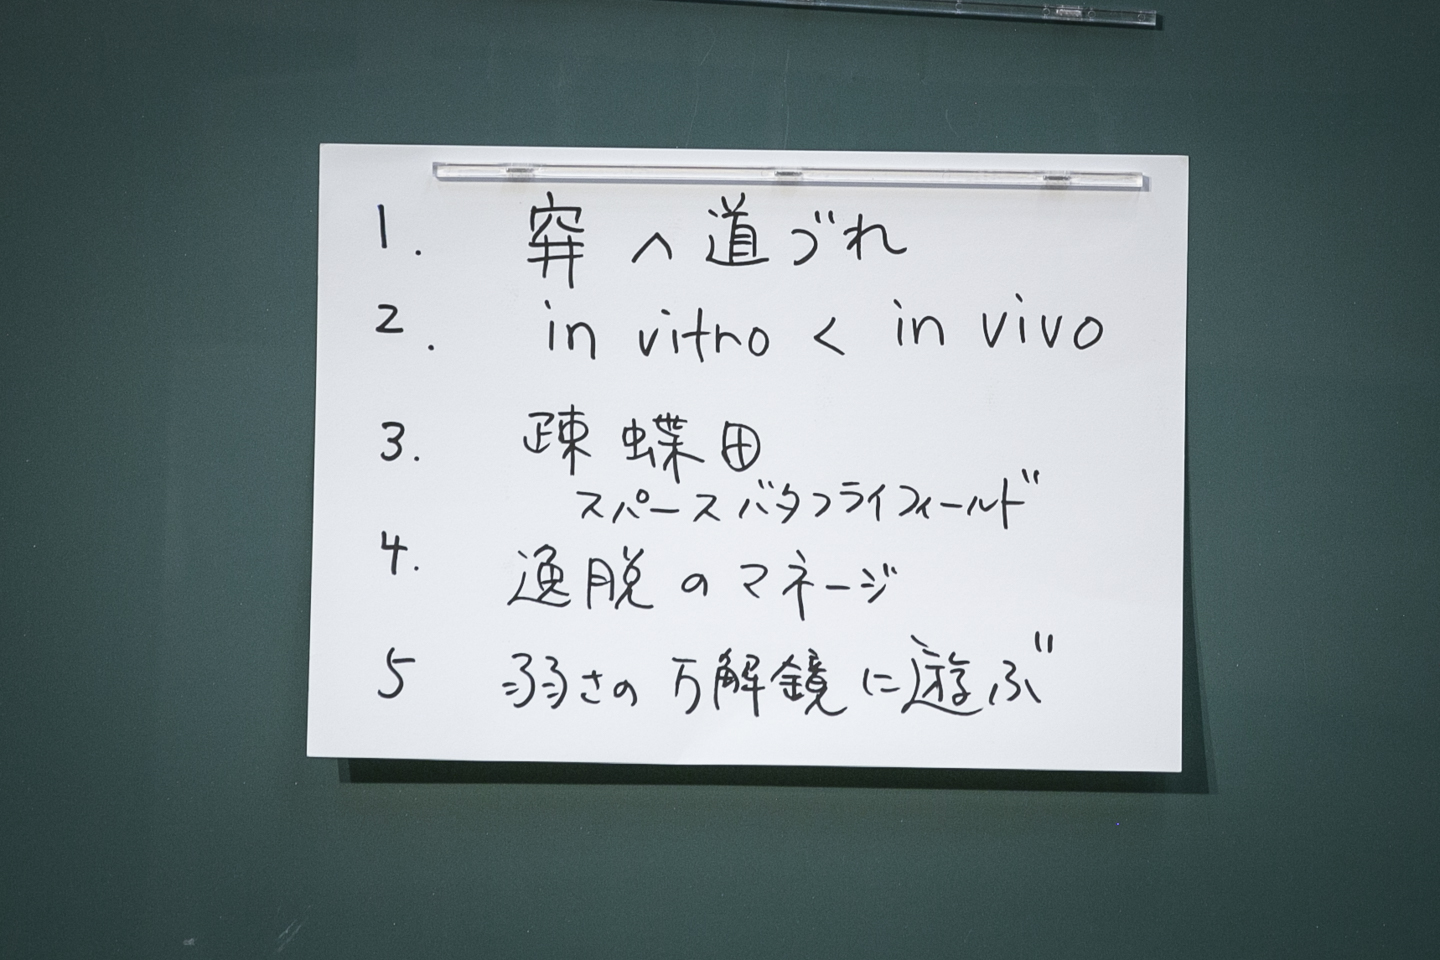 1. 穽へ道づれ
2. in vitro < in vivo
3. 疎蝶田
スパースバタフライフィールド
4. 逸脱のマネージ
5 弱さの万解鏡に遊ぶ